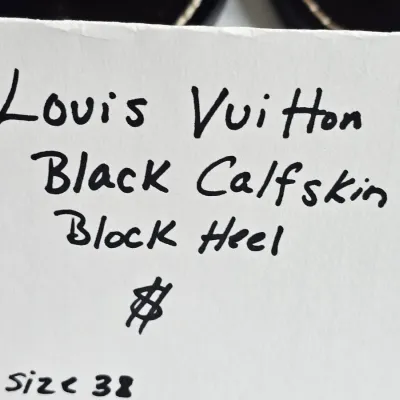 Louis Vuitton
Black Calfskin
Block Heel
$
size 38